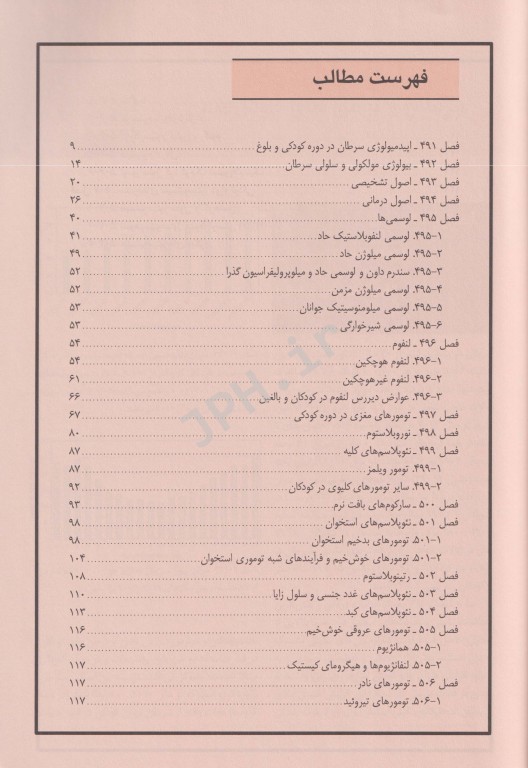 فهرست مطالب
فصل ۴۹۱ ـ اپیدمیولوژی سرطان در دوره کودکی و بلوغ ........ ۹
فصل ۴۹۲ ـ بیولوژی مولکولی و سلولی سرطان ........ ۱۴
فصل ۴۹۳ ـ اصول تشخیصی ........ ۲۰
فصل ۴۹۴ ـ اصول درمانی ........ ۲۶
فصل ۴۹۵ ـ لوسمی‌ها ........ ۴۰
۴۹۵-۱. لوسمی لنفوبلاستیک حاد ........ ۴۱
۴۹۵-۲. لوسمی میلوژن حاد ........ ۴۹
۴۹۵-۳. سندرم داون و لوسمی حاد و میلوپرولیفراسیون گذرا ........ ۵۲
۴۹۵-۴. لوسمی میلوژن مزمن ........ ۵۲
۴۹۵-۵. لوسمی میلومنوسیتیک جوانان ........ ۵۳
۴۹۵-۶. لوسمی شیرخوارگی ........ ۵۳
فصل ۴۹۶ ـ لنفوم ........ ۵۴
۴۹۶-۱. لنفوم هوچکین ........ ۵۴
۴۹۶-۲. لنفوم غیرهوچکین ........ ۶۱
۴۹۶-۳. عوارض دیررس لنفوم در کودکان و بالغین ........ ۶۶
فصل ۴۹۷ ـ تومورهای مغزی در دوره کودکی ........ ۶۷
فصل ۴۹۸ ـ نوروبلاستوم ........ ۸۰
فصل ۴۹۹ ـ نئوپلاسم‌های کلیه ........ ۸۷
۴۹۹-۱. تومور ویلمز ........ ۸۷
۴۹۹-۲. سایر تومورهای کلیوی در کودکان ........ ۹۲
فصل ۵۰۰ ـ سارکوم‌های بافت نرم ........ ۹۳
فصل ۵۰۱ ـ نئوپلاسم‌های استخوان ........ ۹۸
۵۰۱-۱. تومورهای بدخیم استخوان ........ ۹۸
۵۰۱-۲. تومورهای خوش‌خیم و فرآیندهای شبه توموری استخوان ........ ۱۰۴
فصل ۵۰۲ ـ رتینوبلاستوم ........ ۱۰۸
فصل ۵۰۳ ـ نئوپلاسم‌های غدد جنسی و سلول زایا ........ ۱۱۰
فصل ۵۰۴ ـ نئوپلاسم‌های کبد ........ ۱۱۳
فصل ۵۰۵ ـ تومورهای عروقی خوش‌خیم ........ ۱۱۶
۵۰۵-۱. همانژیوم ........ ۱۱۶
۵۰۵-۲. لنفانژیوم‌ها و هیگرومای کیستیک ........ ۱۱۷
فصل ۵۰۶ ـ تومورهای نادر ........ ۱۱۷
۵۰۶-۱. تومورهای تیروئید ........ ۱۱۷
JPH.ir